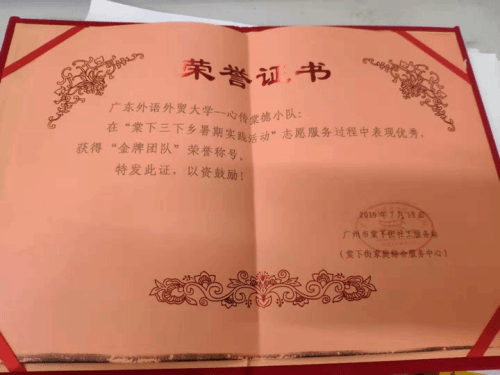 荣誉证书
广东外语外贸大学—心传棠德小队：
在“棠下三下乡暑期实践活动”志愿服务过程中表现优秀，
获得“金牌团队”荣誉称号。
特发此证，以资鼓励！
广州市棠下街社工服务站
（棠下街家庭综合服务中心）